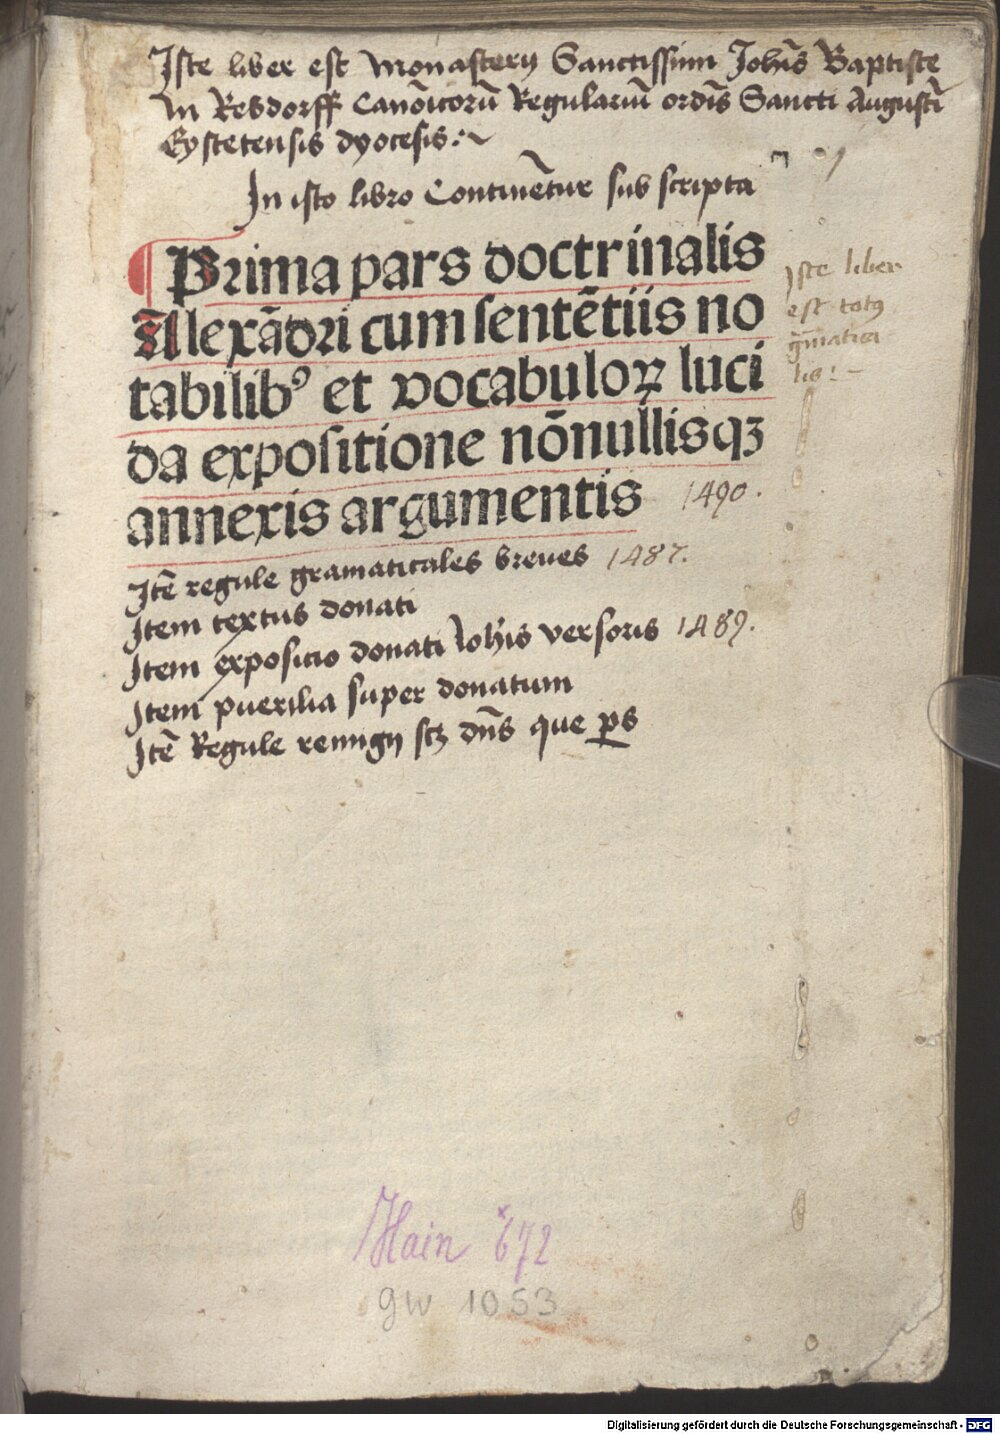 Iste liber est Monasterij Sanctissimi Joh̄is Baptiste
in Rebdorff Canōicorū Regulariū ordīs Sancti Augustī
Eystetensis dyocesis :~
In isto libro Continētur sub scripta
¶ Prima pars doctrinalis
Alexādri cum sentētiis no
tabilibꝰ et vocabuloꝝ luci
da expositione nōnullisqꝫ
annexis argumentis 1490.
Iste liber
est totꝰ
g̅matica
lis :-
Itē regule gramaticales breues 1487.
Item textus donati
Item exposicio donati Ioh̄is versoris 1489.
Item puerilia super donatum
Itē Regule remigij scꝫ dn̄s que ꝑs
Hain *672
GW 1053
Digitalisierung gefördert durch die Deutsche Forschungsgemeinschaft - DFG